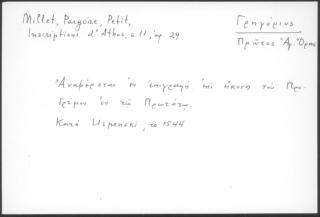 Millet, Pargoire, Petit,
Inscriptions d'Athos, σ. 11, ἀρ. 29
Γρηγόριος
Πρῶτος Ἁγ. Ὄρους
Ἀναφέρεται ἐν ἐπιγραφῇ ἐπὶ εἰκόνος τοῦ Προ-
δρόμου ἐν τῷ Πρωτάτῳ.
Κατὰ Uspenski, τὸ 1544